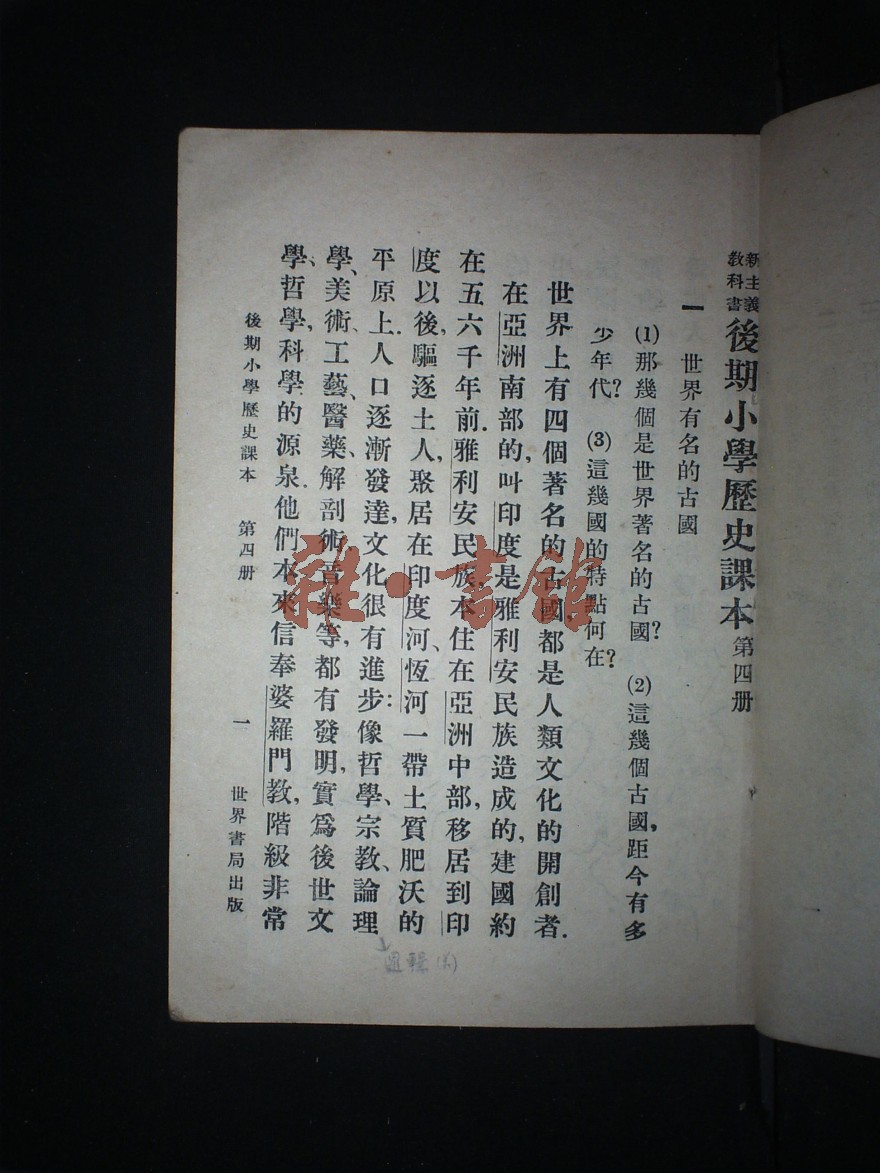 新主義教科書後期小學歷史課本第四册
一 世界有名的古國
(1)那幾個是世界著名的古國?(2)這幾個古國,距今有多
少年代?(3)這幾國的特點何在?
世界上有四個著名的古國,都是人類文化的開創者.
在亞洲南部的,叫印度是雅利安民族造成的,建國約
在五六千年前.雅利安民族,本住在亞洲中部,移居到印
度以後,驅逐土人,聚居在印度河、恆河一帶土質肥沃的
平原上.人口逐漸發達,文化很有進步:像哲學、宗教、論理
學、美術、工藝、醫藥、解剖術、音樂等,都有發明,實爲後世文
學、哲學,科學的源泉.他們本來信奉婆羅門教,階級非常
後期小學歷史課本 第四册 一 世界書局出版
雅·書館
邏輯